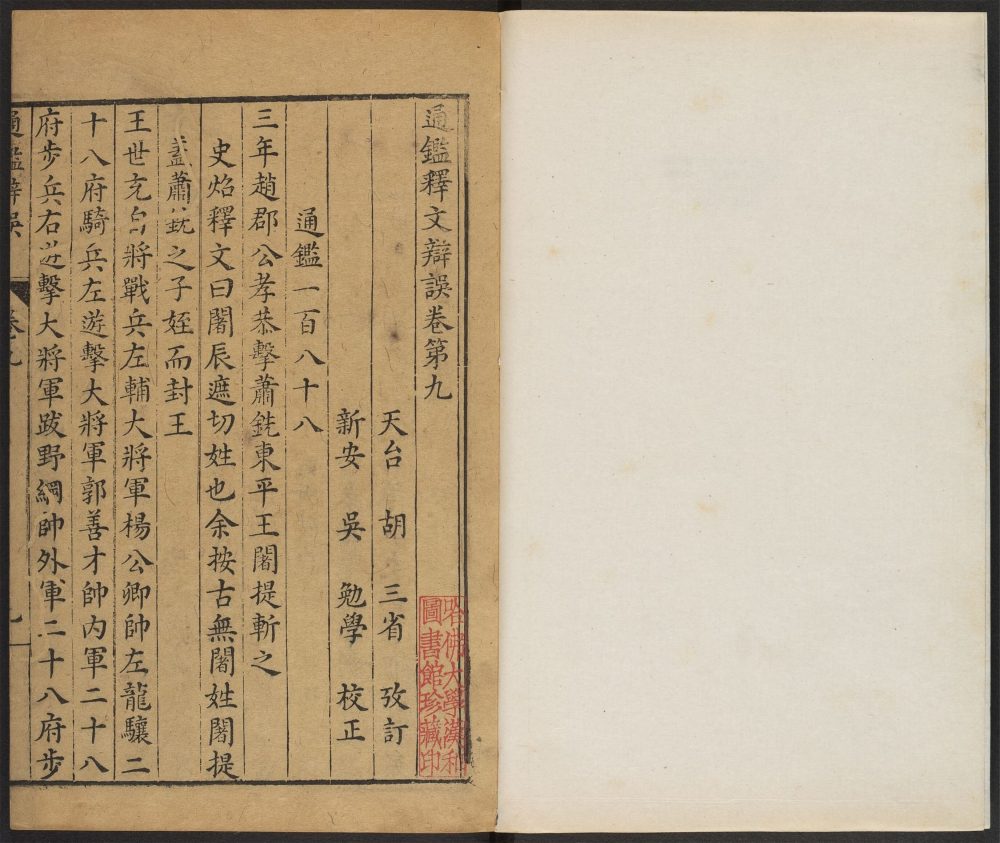 通鑑釋文辯誤卷第九
天台胡三省攷訂
新安吳勉學校正
通鑑一百八十八
三年趙郡公孝恭擊蕭銑東平王闍提斬之
史炤釋文曰闍辰遮切姓也余按古無闍姓闍提
蓋蕭銑之子姪而封王
王世充自將戰兵左輔大將軍楊公卿帥左龍驤二
十八府騎兵左遊擊大將軍郭善才帥內軍二十八
府步兵右遊擊大將軍跋野綱帥外軍二十八府步
通鑑辯誤 卷九
哈佛大學漢和
圖書館珍藏印